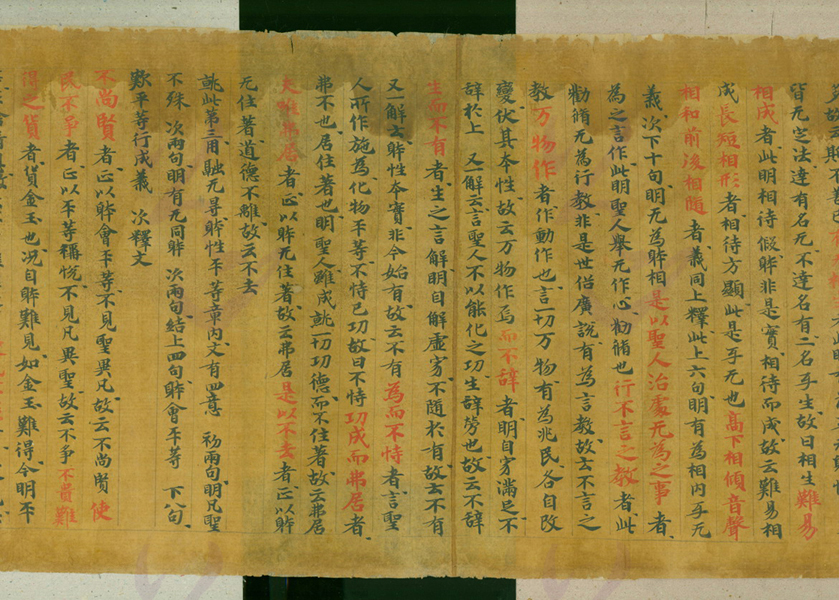 皆无定法達有名无不達名有二名乎生故曰相生難易
相成者此明相待假躰非是實相待而成故云難易相
成長短相形者相待方顯此是乎无也高下相傾音聲
相和前後相隨者義同上釋此上六句明有為相內乎无
義次下十句明无為躰相是以聖人治處无為之事者
為之言作此明聖人舉无作心勸脩也行不言之教者此
勸脩无為行教非是世俗廣說有為言教故云不言之
教万物作者作動作也言一切万物有為兆民各自改
變伏其本性故云万物作焉而不辞者明自穷滿足不
辞於上又一解云言聖人不以能化之功生辞勞也故云不辞
生而不有者生之言解明自解虛穷不隨於有故云不有
又一解云躰性本實非今始有故云不有為而不恃者言聖
人所作施為化物平等不恃已功故曰不恃功成而弗居者
弗不也居住著也明聖人雖成就一切功德而不住著故云弗居
夫唯弗居者正以躰无住著故云弗居是以不去者正以躰
无住著道德不離故云不去
就此第三用融无㝵躰性平等章内文有四意初兩句明凡聖
不殊次兩句明有无同躰次兩句結上四句躰會平等下八句
歎平等行成義次釋文
不尚賢者正以躰會平等不見聖異凡故云不尚賢使
民不爭者正以平等稱悅不見凡異聖故云不争不貴難
得之貨者貨金玉也况自躰難見如金玉難得今明平